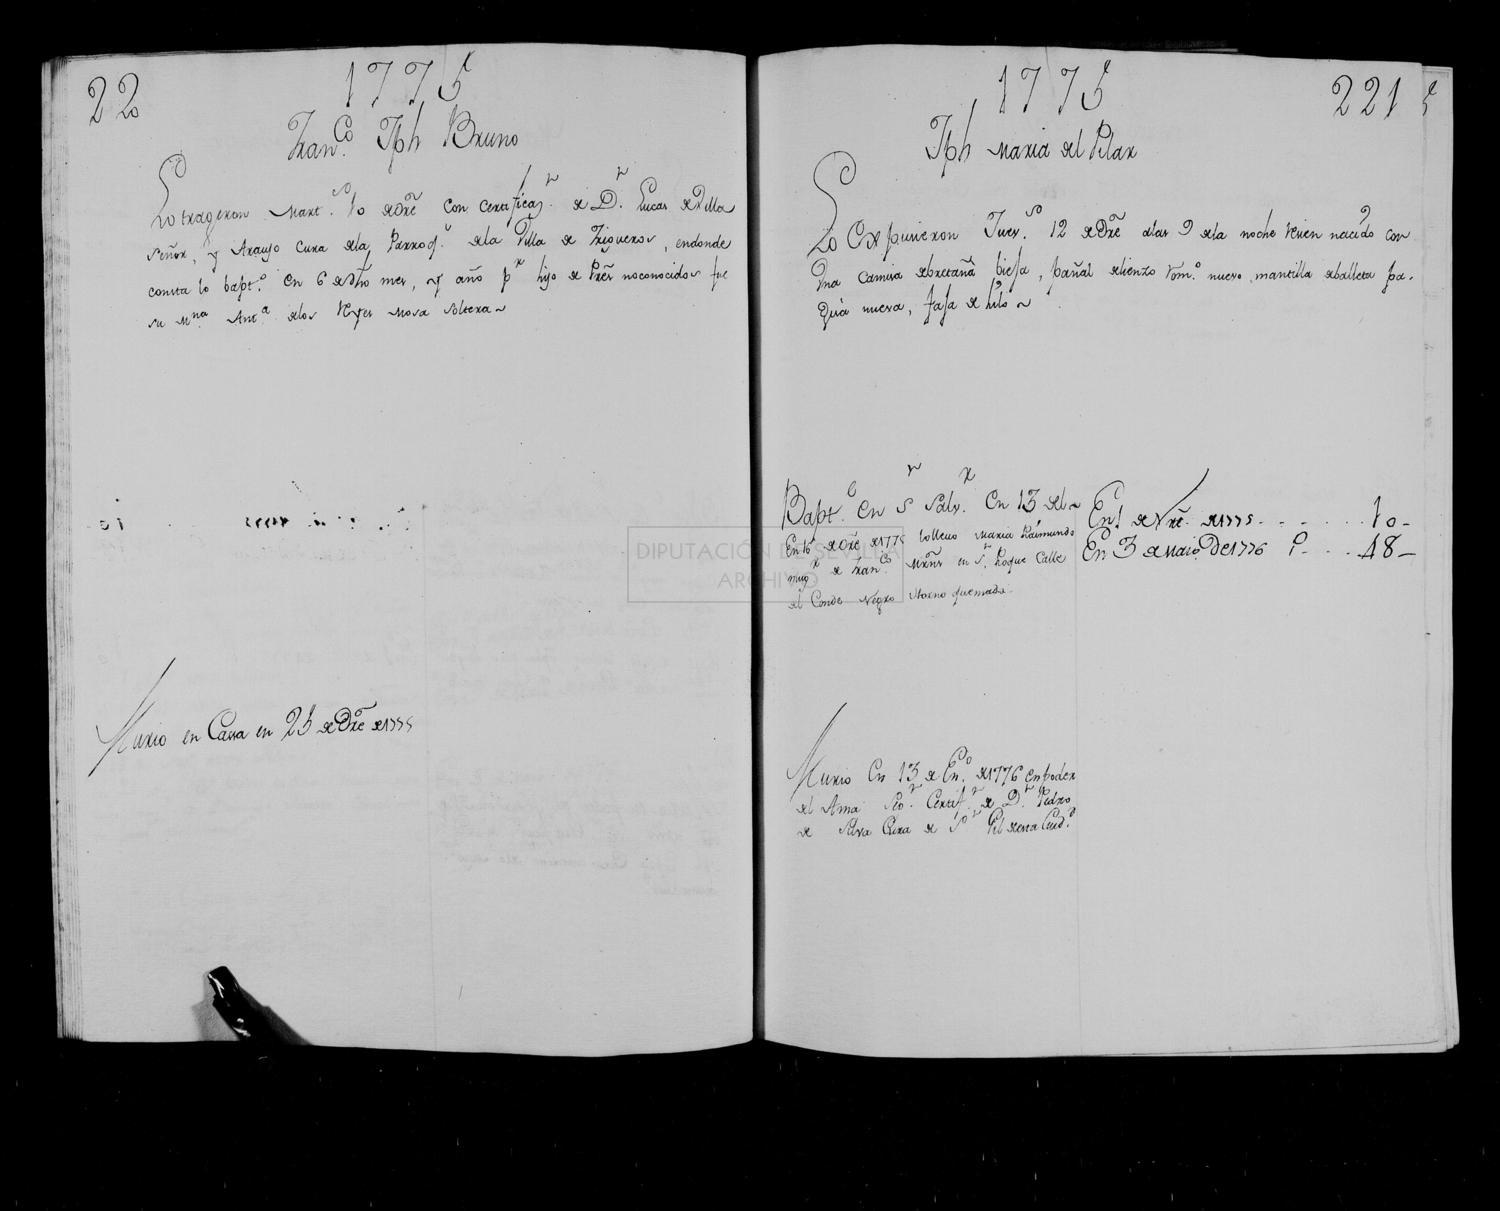 220
1775
Fran.co Jph Bruno
Lo trageron Mart.s 10 de Dre con certificaz.n de D.n Lucas de Villa
Señor, y Araujo Cura de la Parroq.a de la Villa de Trigueros, en donde
consta lo bapt.o en 6 de dho mes, y año p.r hijo de Pres no conocidos fue
su M.na Ant.a de los Reyes Mosa soltera
Murio en Casa en 25 de Dre de 1775
1775
221
Jph Maria del Pilar
Lo Expusieron Juev.s 12 de Dre a las 9 de la noche resien nacido con
Una camisa de bretaña bieja, pañal de lienzo nuevo, mantilla de balleta pa-
nueva, faja de hilo
Bapt.o En S.n Salv.r En 13 del
En 16 de Dre de 1775 lo llevo Maria Raimundo
mug.r de Fran.co Mrns en S.n Roque Calle
del Conde Negro Horno quemado.
En 1 de de 1775 - - - - 10 -
En 3 de de 1776 - - - 48 -
Murio En 13 de En.o de 1776 en poder
del Ama Certif.n de D.n Pedro
de Silva Cura de S.n Gil de esta Ciud.d
DIPUTACIÓN DE SEVILLA
ARCHIVO